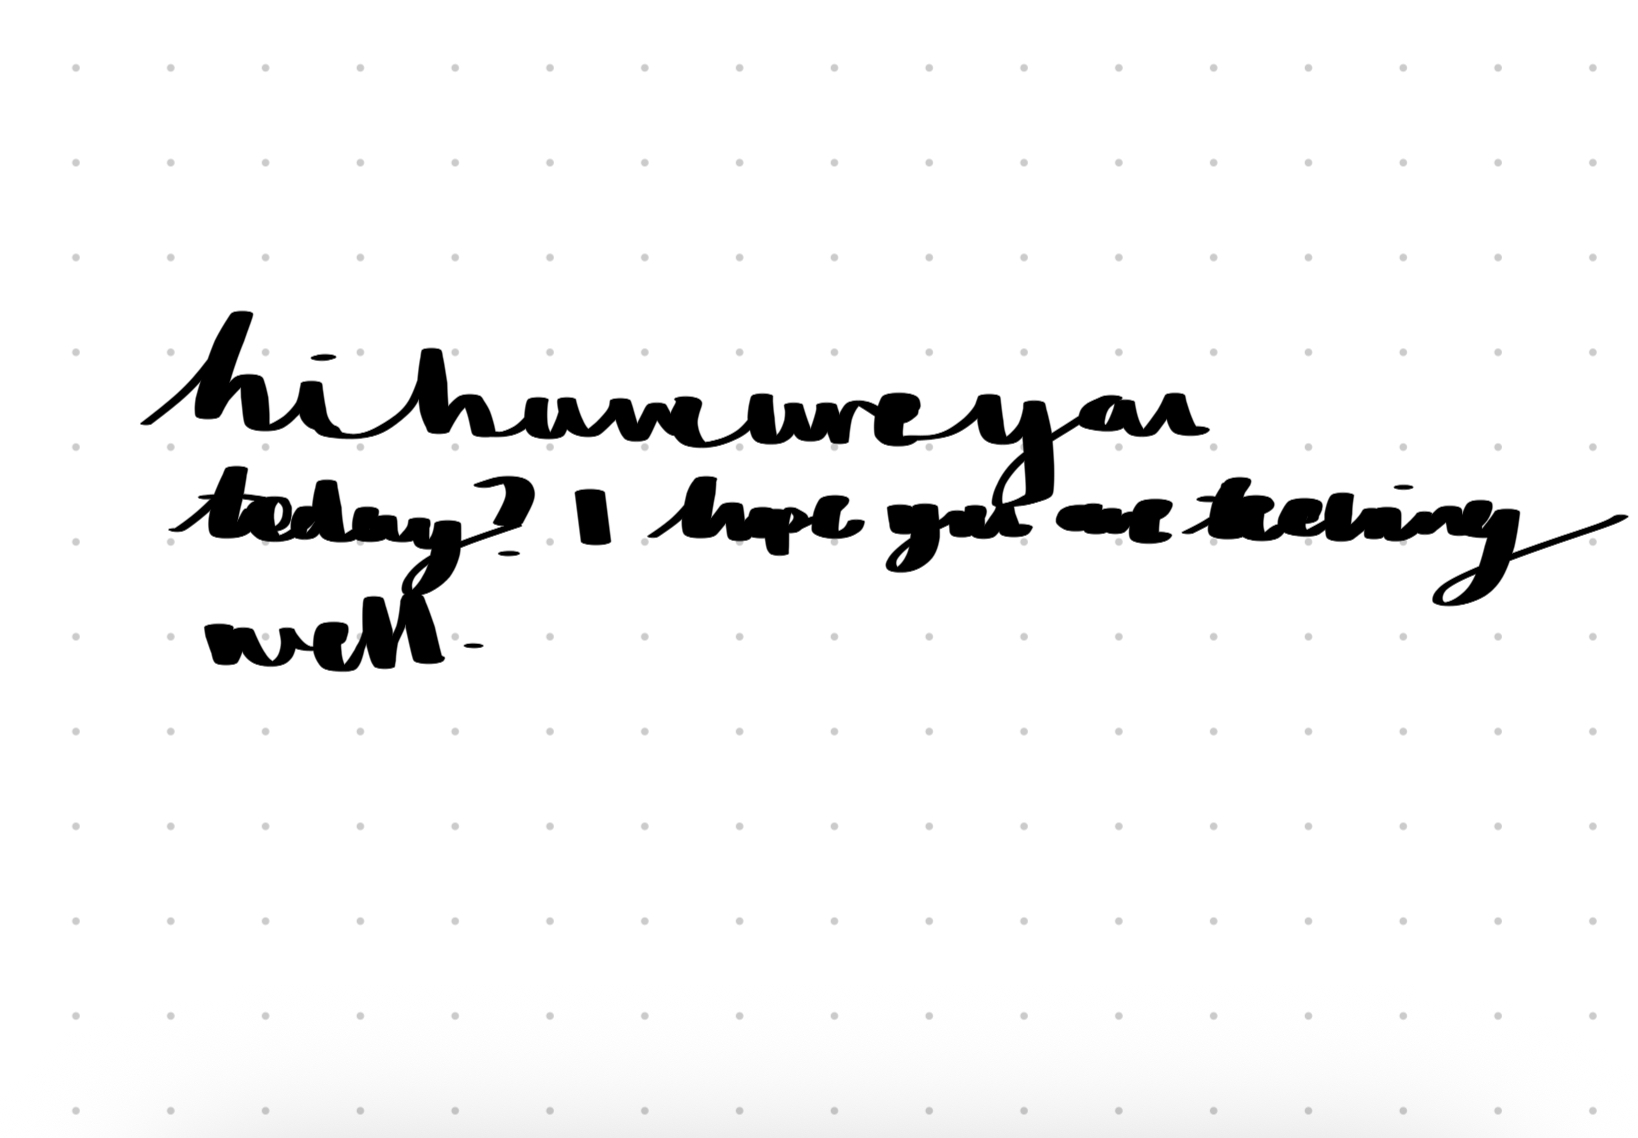 hi how are you
today? I hope you are feeling
well.